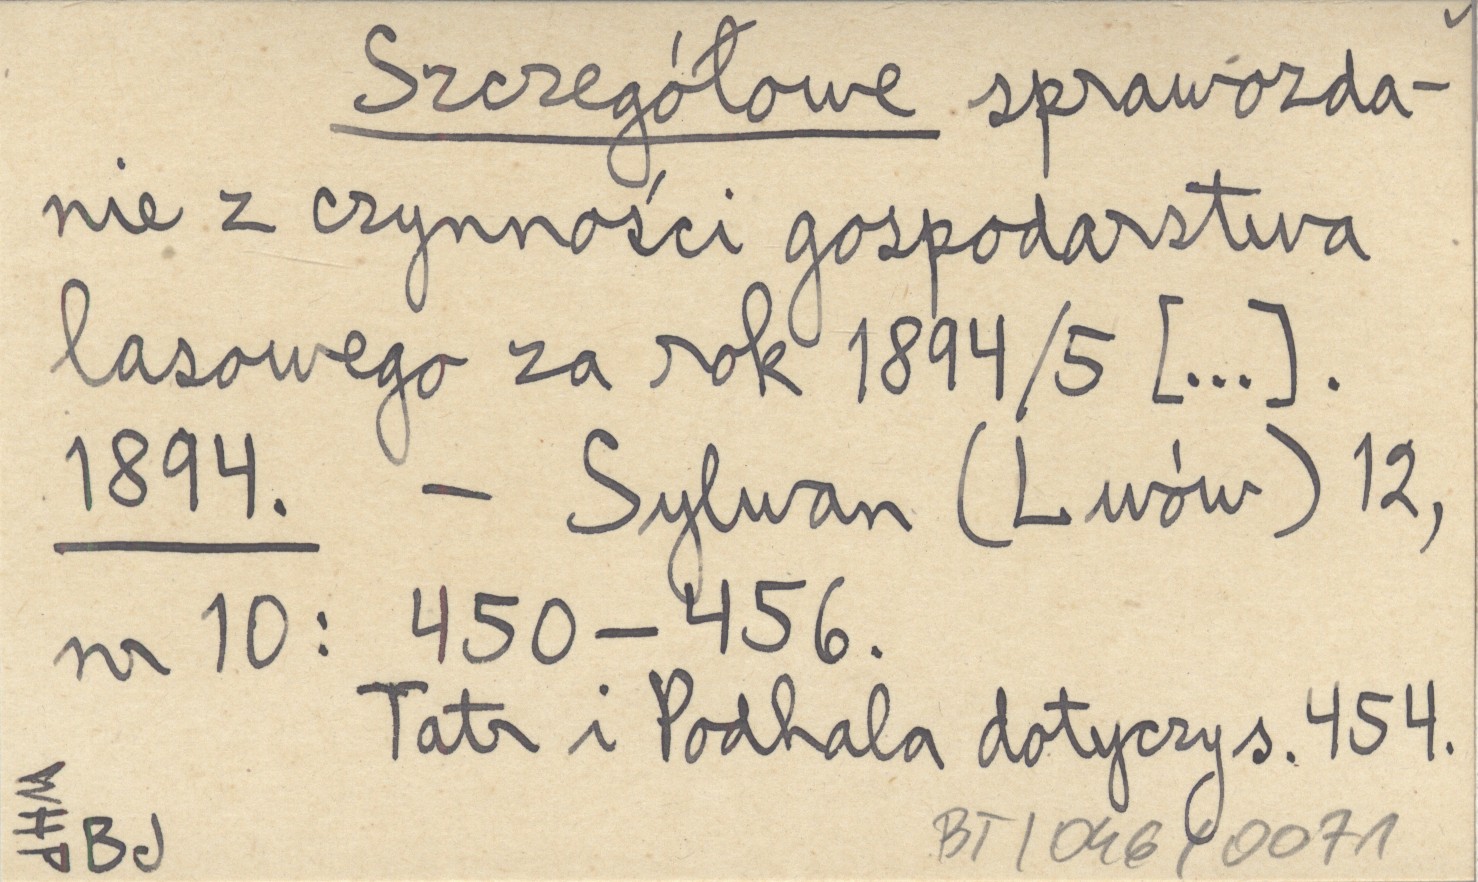 Szczegółowe sprawozda-
nie z czynności gospodarstwa
lasowego za rok 1894/5 [...].
1894. – Sylwan (Lwów) 12,
nr 10: 450–456.
Tatr i Podhala dotyczy s. 454.
WHP
BJ
BT/046/0071